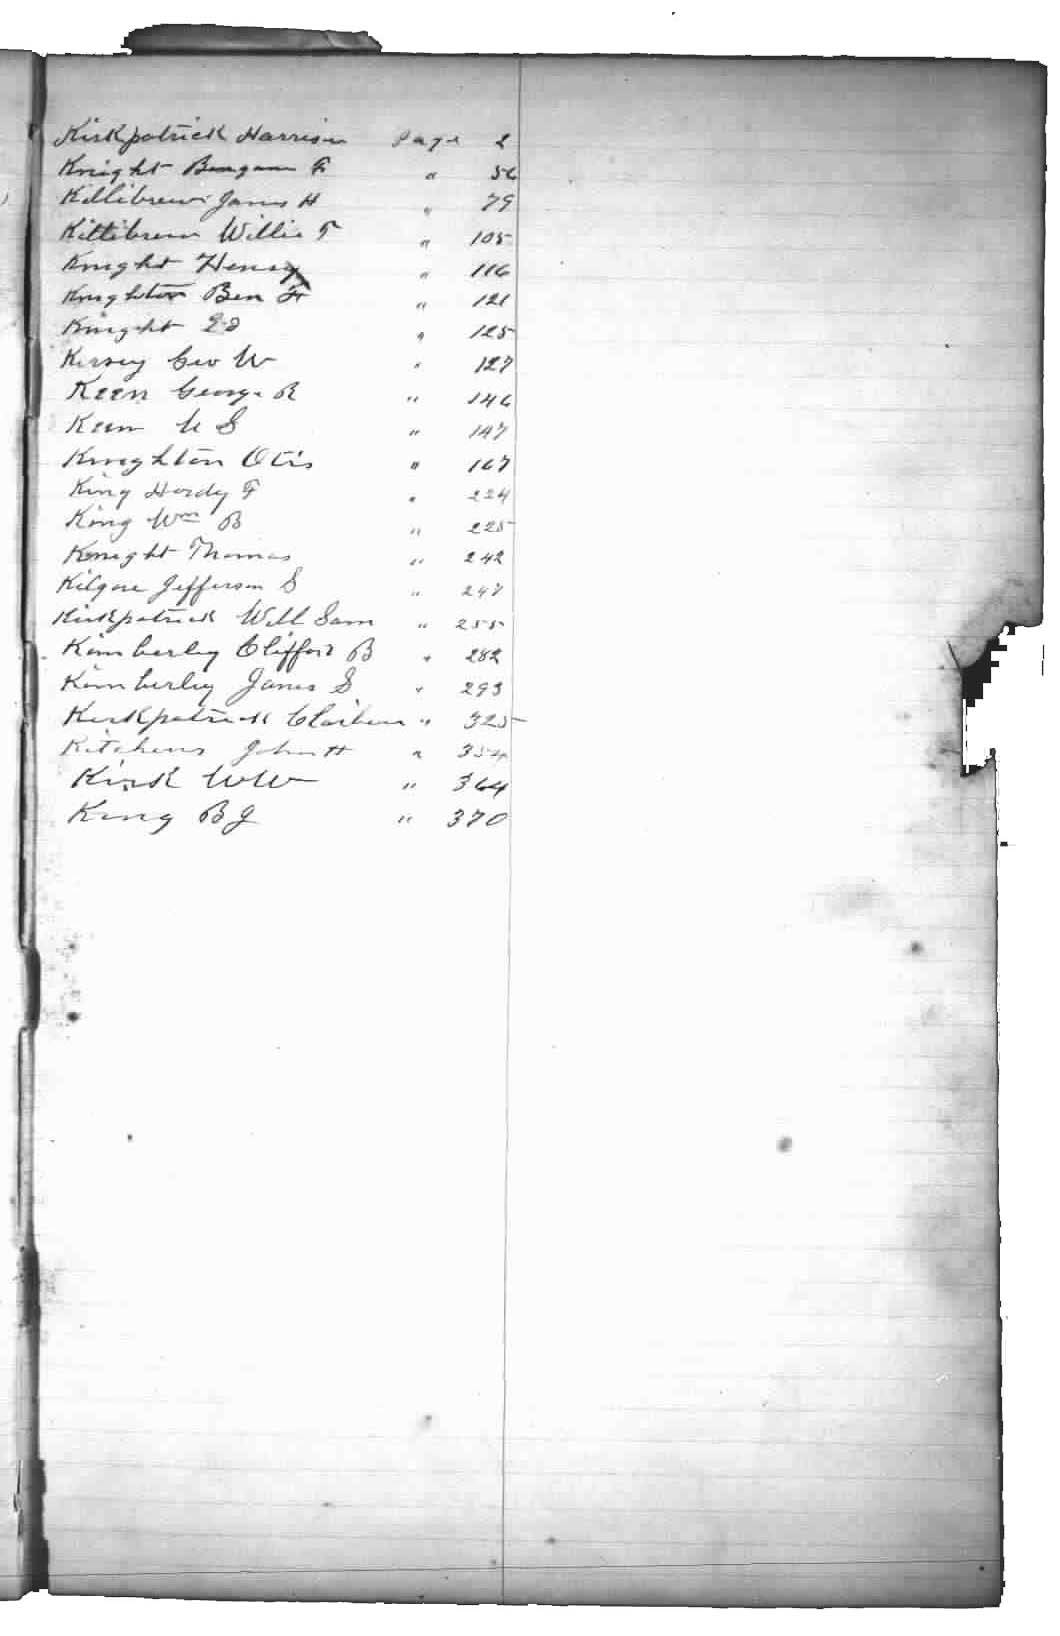 Kirkpatrick Harrison Page 2
Knight Bengamn F " 56
Killibrew James H " 79
Killibrew Willie T " 105
Knight Henry " 116
Knighton Ben F " 121
Knight Ed " 125
Kersey Geo W " 127
Keen George R " 146
Keen U S " 147
Knighton Otis " 167
King Hardy F " 224
King Wm B " 225
Knight Thomas " 242
Kilgore Jefferson S " 247
Kirkpatrick Will Sam " 255
Kimberley Clifford B " 282
Kimberley James S " 293
Kirkpatrick Claiburn " 325
Kitchens John H " 354
Kirk W W " 364
King B J " 370